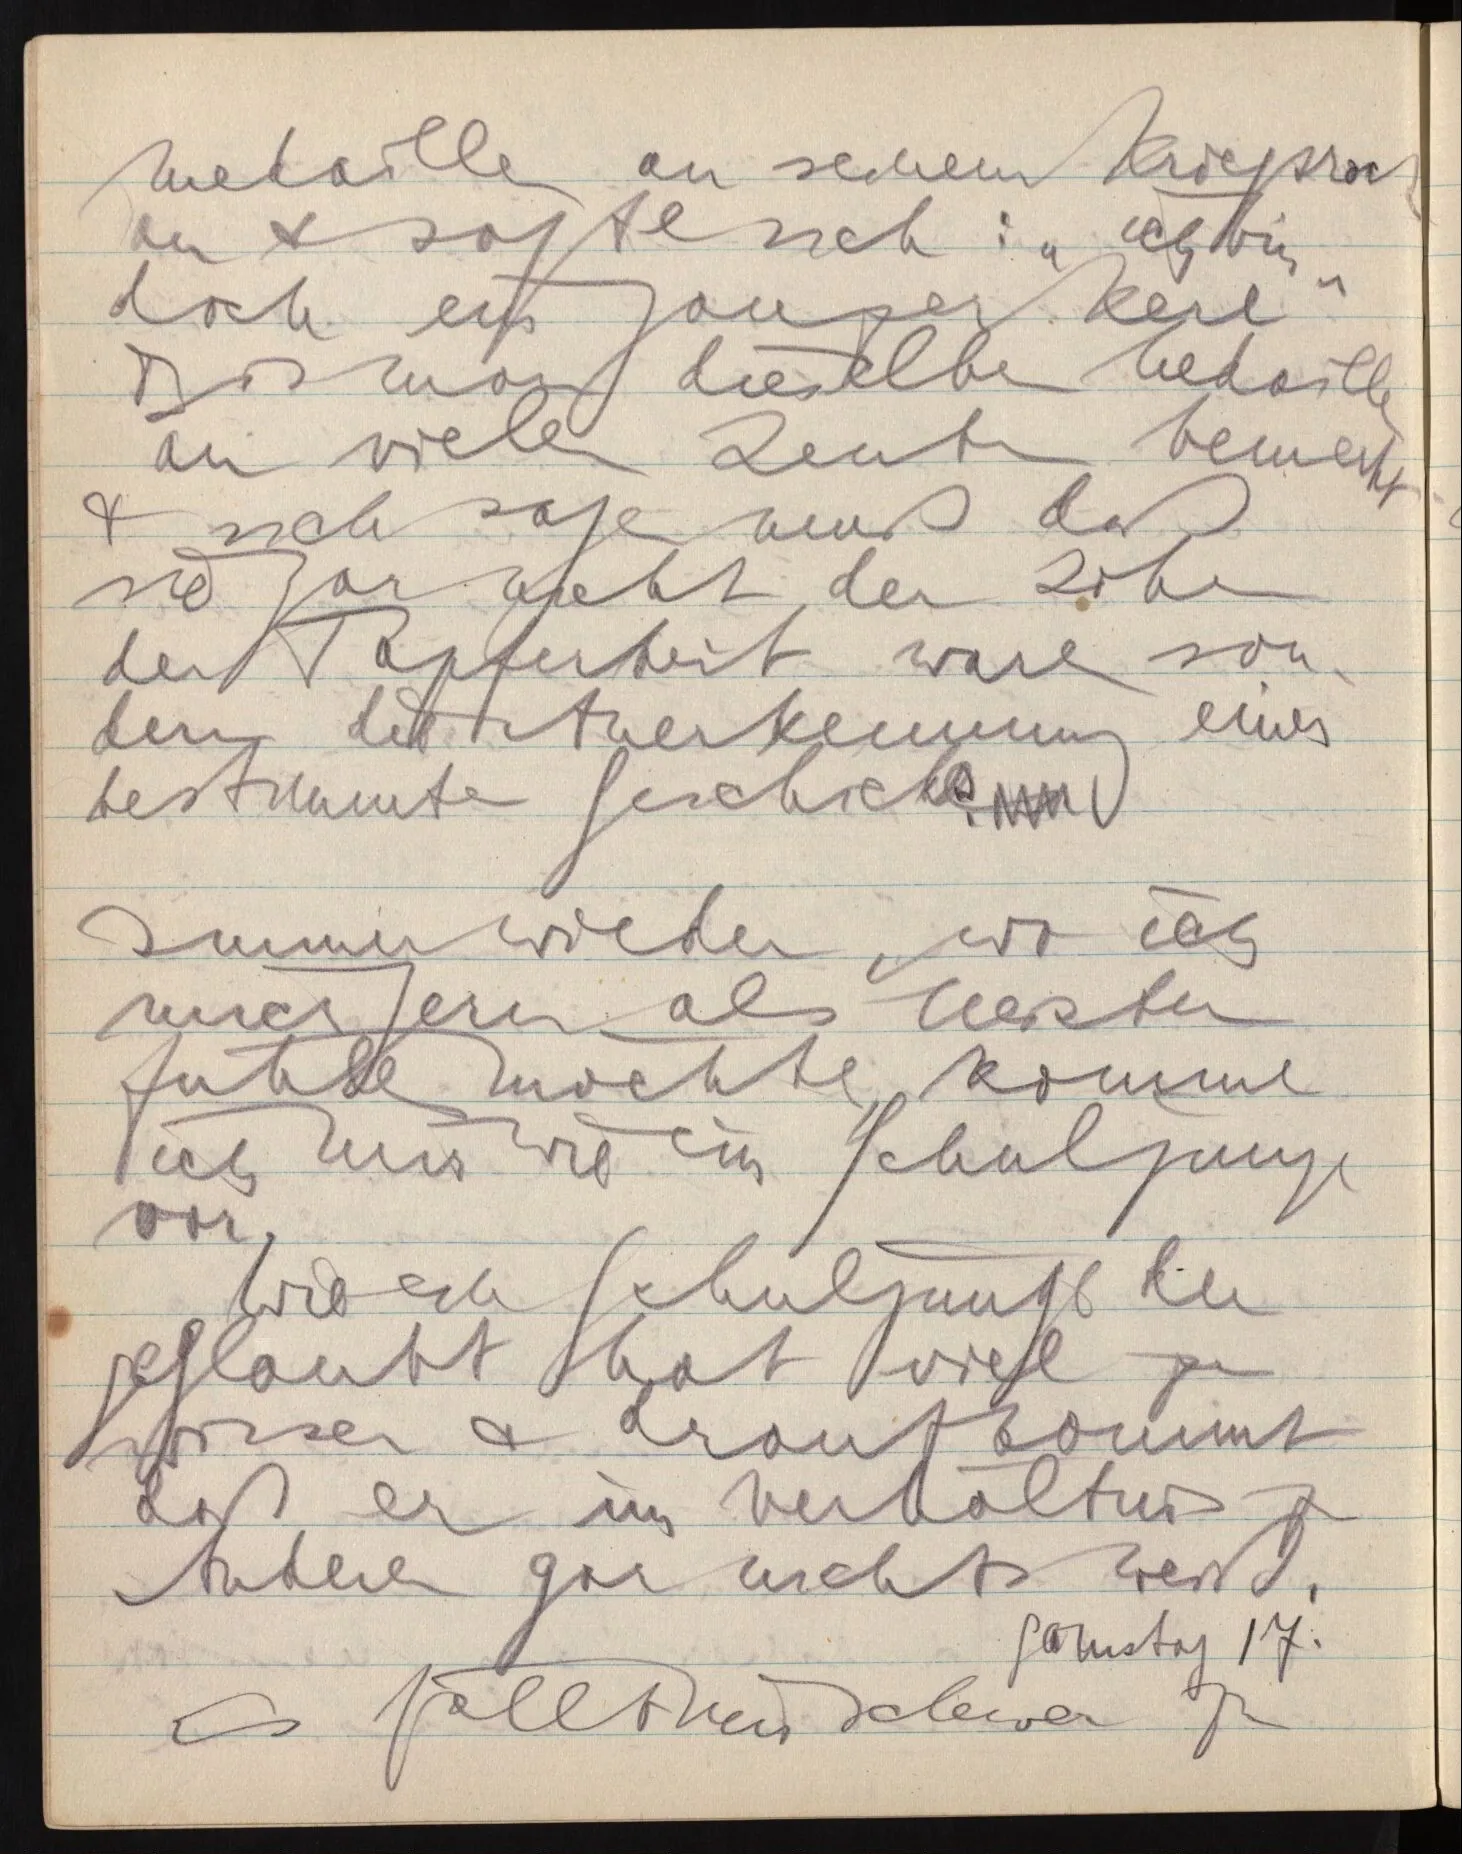 Medaille an seinem Kriegsrock
an & sagte sich: „ich bin
doch ein ganzer Kerl"
Bis man dieselbe Medaille
an vielen Leuten bemerkt
& sich sagen muß daß
sie gar nicht der Lohn
der Tapferkeit ware son-
dern die Anerkennung eines
bestimmten Geschickes
Immer wieder, wo ich
mich gern als Meister
fuhlen mochte, komme
ich mir wie ein Schuljunge
vor.
Wie ein Schuljunge der
geglaubt hat viel zu
wissen & draufkommt
daß er im Verhältnis zu
Anderen gar nichts weiß.
Samstag 17.
Es fällt mir schwer zu